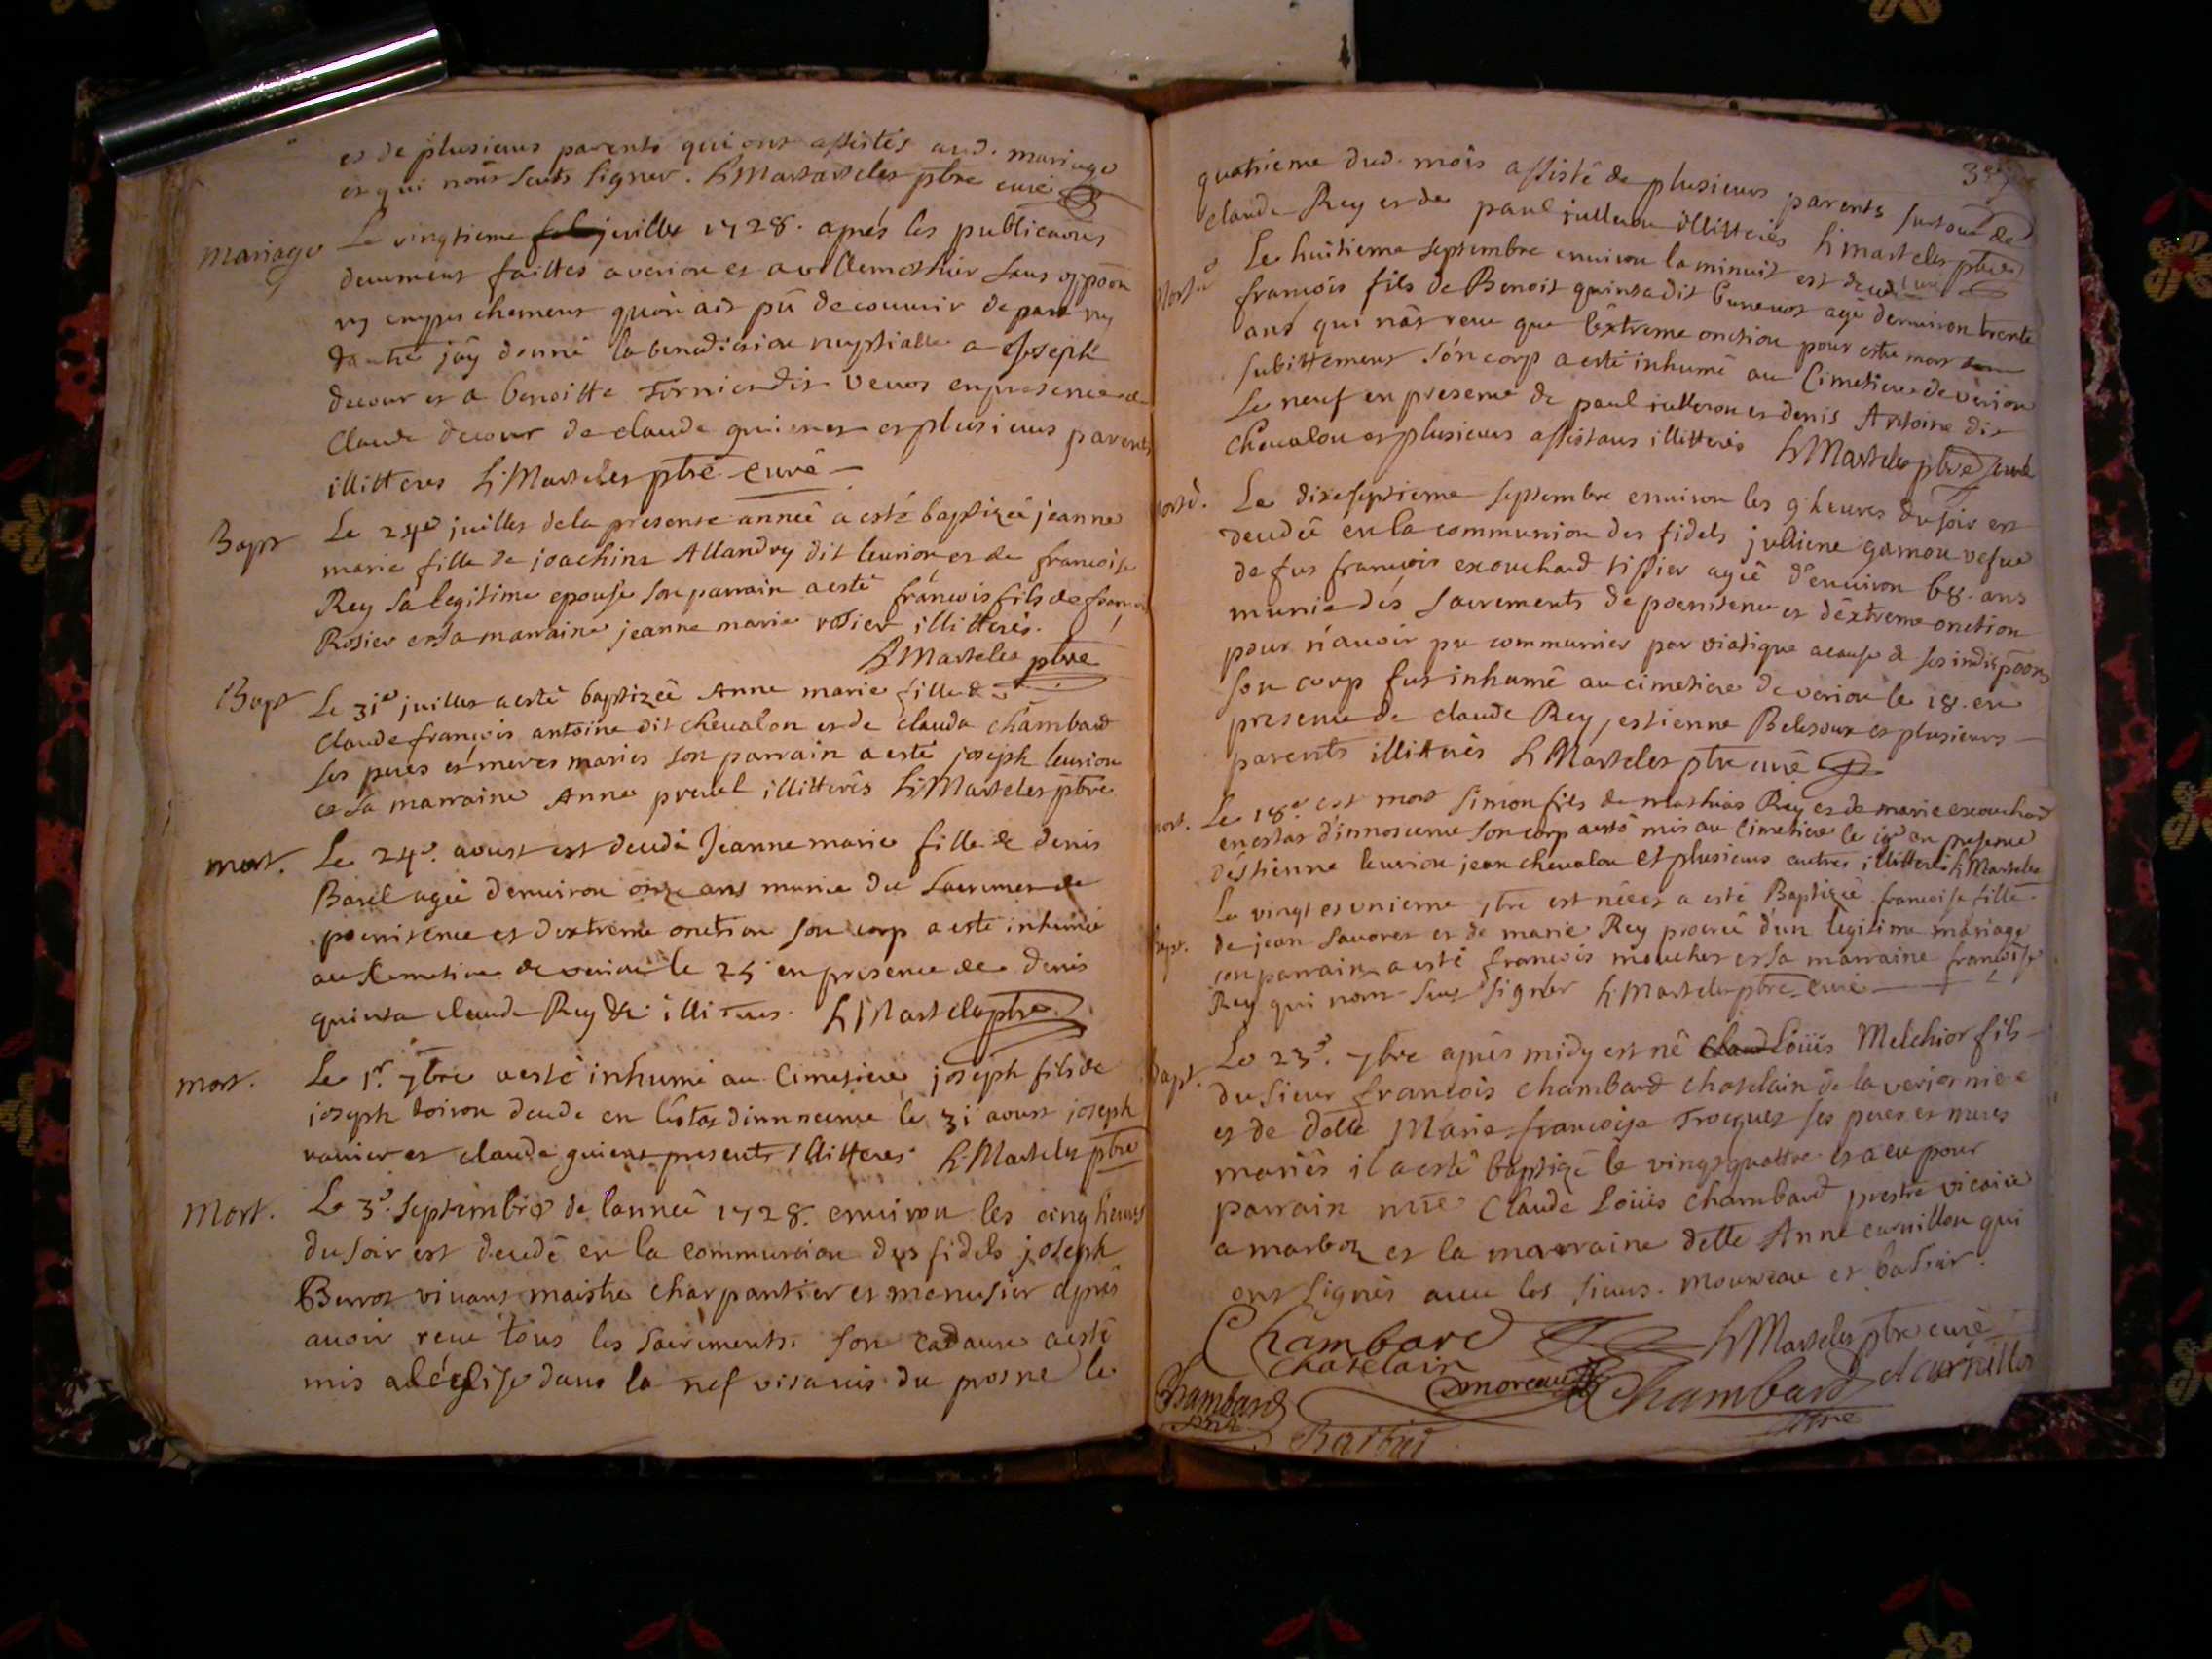 et de plusieurs parents qui ont assistés aud. mariage
et qui nont sceuts signer. h Martelet ptre curé
Mariage
Le vingtieme juillet 1728. aprés les publicaons
deuement faittes a verion et a villemothier sans oppoon
ny empeschement quon ait pû decouurir de part ny
dautre jäy donné la benediction nuptialle a Joseph
decour et a benoitte Tornier dit Venot en presence de
Claude decour de claude guienet et plusieurs parents
illitteres h Martelet ptre curé
Bapt
Le 24e juillet de la presente année a esté baptizée jeanne
marie fille de joachim Allandry dit leurion et de francoise
Rey sa legitime epouse son parrain a esté francois fils de
Rosier et sa marraine jeanne marie rosier illitterés.
h Martelet ptre
Bapt
Le 31e juillet a esté baptizée Anne marie fille de
Claude francois antoine dit chevalon et de clauda chambard
ses peres et meres mariés son parrain a esté joseph leurion
et sa marraine Anne illitterés h Martelet ptre
mort.
Le 24e. aoust est decedé Jeanne marie fille de denis
Barel agée denuiron onze ans munie du Sacrement de
poenitence et dextreme onction son corp a esté inhumé
au Cimetiere de verion le 25 en presence de denis
quinsa claude Rey &c illiteres. h Martelet ptre
mort.
Le 1r. 7bre a esté inhumé au Cimetiere joseph fils de
joseph decede en léstat dinnocence le 31 aoust joseph
et claude guienet presents illitteres h Martelet ptre
Mort.
Le 3e. Septembre de lannée 1728. enuiron les cinq heures
du soir est decedé en la communion des fidels joseph
Berrot viuant maistre charpantier et menusier aprés
auoir receu tous les sacrements. son cadaure a esté
mis a léglise dans la nef vis a uis du prosne le
quatrieme dud. mois assisté de plusieurs parents surtout de
claude Rey et de paul julleron illitterés h martelet ptre
curé
Mort
Le huitieme septembre enuiron la minuit est decedé
francois fils de Benoit quinsa dit agé denuiron trente
ans qui nás receu que léxtreme onction pour estre mort
subittement són corp a esté inhumé au Cimetiere de verion
Le neuf en presence de paul julleron et denis Antoine dit
Cheualon et plusieurs assistans illitterés h Martelet ptre curé
Le dixseptieme septembre enuiron les 9 heures du soir est
decedée en la communion des fidels julliene gamou vefue
de fut francois exouchard tissier agée d'enuiron 68. ans
munie dés sacrements de poenitence et déxtreme onction
pour n'auoir pu communier par viatique a cause de ses indispoons
son corp fut inhumé au cimetiere de verion le 18. en
presence de claude Rey, estienne et plusieurs
parents illitterés h Martelet ptre curé
mort.
Le 18e est mort Simon fils de mathias Rey et de marie exouchard
en estat d'innoscence son corp a esté mis au Cimetiere le 19e en presence
déstienne leurion jean cheualon et plusieurs autres illitterés h Martelet
Bapt.
Le vingt et unieme 7bre est néé et a esté Baptizée francoise fille
de jean Sauoret et de marie Rey procréé d'un legitime mariage
son parrain a esté francois mouchet et sa marraine francoise
Rey qui nont sceus signer h Martelet ptre curé
Bapt.
Le 23e. 7bre aprés midy est né Loüis Melchior fils
du Sieur francois chambard chatelain de la
et de delle Marie francoise ses peres et meres
mariés il a esté baptizé le vingt quattre et a eu pour
parrain mre Claude Loüis chambard prestre vicaire
a marboz et la marraine delle Anne curnillon qui
ont signés auec les sieurs. moureau et
Chambard
Chatelain
h Martelet ptre curé
Chambard
moreau
Chambard
A curnillon